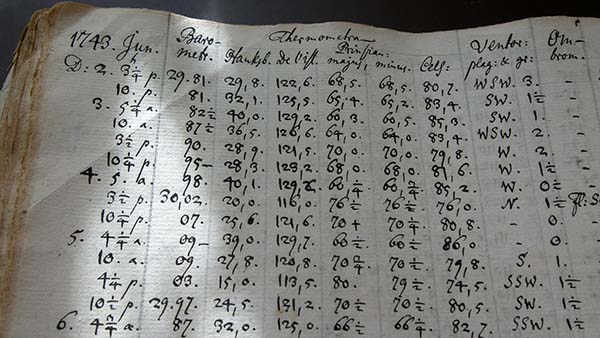 1743. Jun. Baro- Thermometra Ventor. Om-
metr. Hauksb. de l'Isl. Prinsian: majus, minus. Cels: plag: & gr: brom.
D: 2. 3 1/4 p. 29.81. 29,8. 122,6. 68,5. 68,5. 80,7. WSW. 3. -
10. p. 81. 32,1. 125,5. 65,4. 65,2. 83,4. SW. 1 1/2 -
3. 5 1/4 a. 82 1/2 40,0. 129,2. 60,3. 60,5. 85,3. SW. 1. -
10. a. 87 1/2 36,5. 126,6. 64,0. 64,0. 83,4. WSW. 2. -
3 1/2 p. 90. 28,9. 121,5. 70,0. 70,0. 79,8. W. 2. -
10 1/4 p. 95- 28,3. 123,2. 68,0. 68,0. 81,6. W. 1 1/2 -
4. 5. a. 98. 40,1. 129,2. 60 1/4 60 3/4 85,2. W. 0 1/2 -
3 1/2 p. 30,02. 20,0. 116,0. 76 1/2 76 1/2 76,0. N. 1 1/2
10 1/4 p. 07. 25,6. 121,6. 70+ 70 1/4 80,8. - 0. -
5. 4 3/4 a. 09- 39,0. 129,7. 60 1/2 60 1/2 86,0 - 0.
10. a. 09. 27,8. 120,8. 70 3/4 70 1/2 79,8. S. 1.
4 1/4 p. 03. 15,0. 113,5. 80. 79 1/2 74,5. SSW. 1 1/2
10 1/2 p. 29.97. 24,5. 121,2. 70 1/2 70 1/2 80,5. SW. 1 1/2
6. 4 3/4 a. 87. 32,0. 125,0. 66 1/2 66 1/4 82,7. SSW. 1 1/2